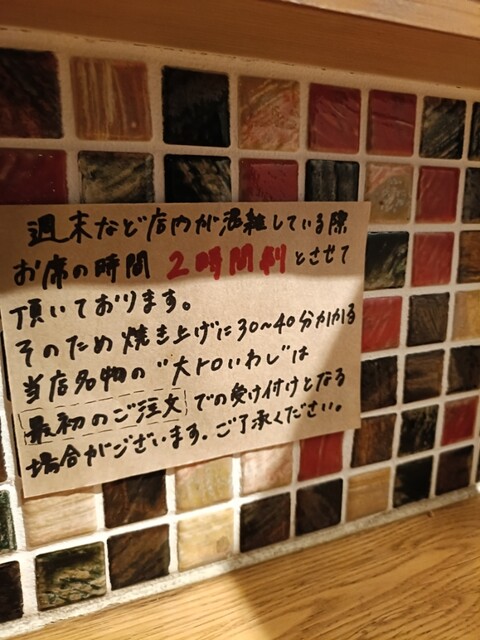 週末など店内が混雑している際
お席の時間 2時間制とさせて
頂いております。
そのため焼き上げに30~40分かかる
当店名物の"大トロいわし"は
最初のご注文での受け付けとなる
場合がございます。ご了承ください。